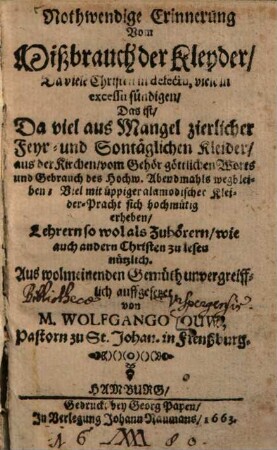 Nothwendige Erinnerung
Vom
Mißbrauch der Kleyder/
Da viele Christen in defectu, viele in
excessu sündigen/
Das ist/
Da viel aus Mangel zierlicher
Feyr- und Sontäglichen Kleider/
aus der Kirchen/ vom Gehör göttlichen Worts
und Gebrauch des Hochw. Abendmahls wegblei-
ben: Viel mit üppiger alamodischer Klei-
der-Pracht sich hochmütig
erheben/
Lehrern so wol als Zuhörern/ wie
auch andern Christen zu lesen
nützlich.
Aus wolmeinenden Gemüth unvergreiff-
lich auffgesetzet
Bibliotheca
von
M. WOLFGANGO
Pastorn zu St. Johan. in Flenßburg.
HAMBURG/
Gedruckt bey Georg Papen/
In Verlegung Johann Naumans/ 1663.